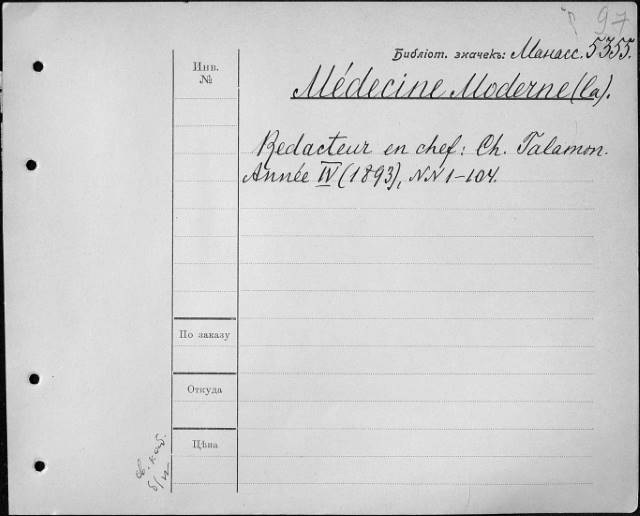 97
Библіот. значекъ: Манасс. 5355.
Инв.
№
Médecine Moderne (la).
Redacteur en chef: Ch. Talamon.
Année IV (1893), NN 1-104.
По заказу
Откуда
Цѣна